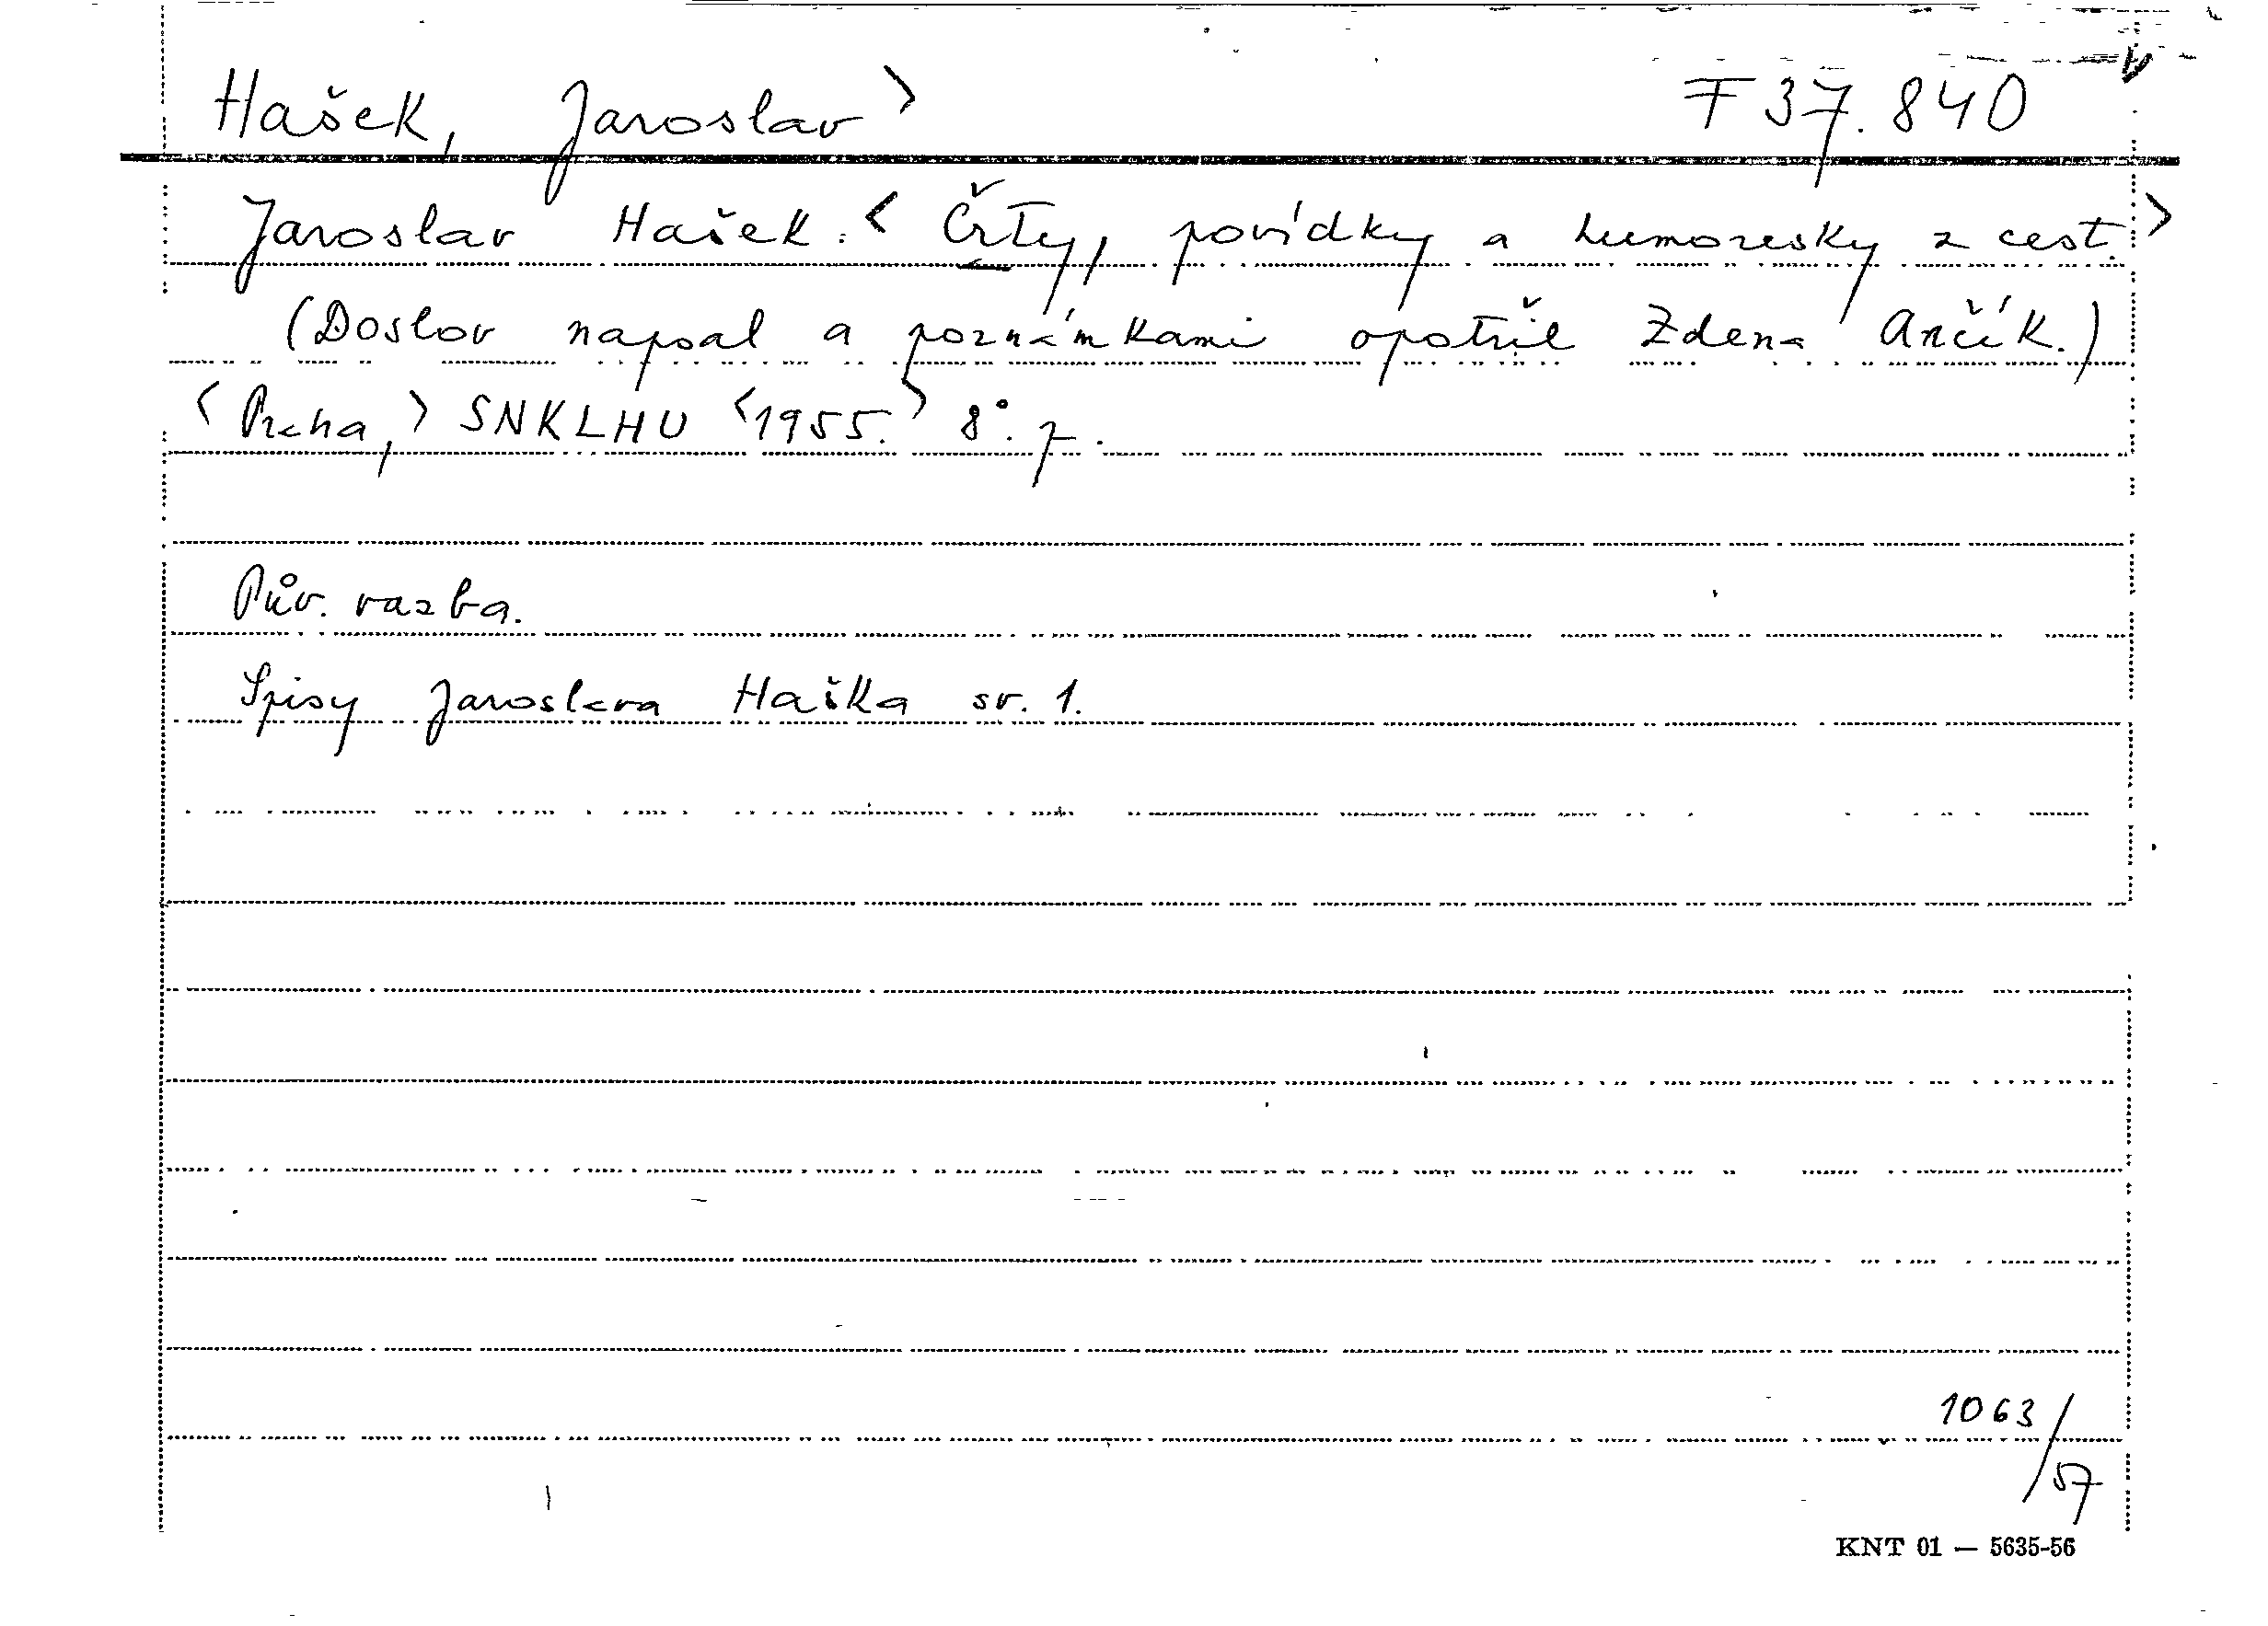 Hašek, Jaroslav> F 37.840
Jaroslav Hašek: <Črty, povídky a humoresky z cest.>
(Doslov napsal a poznámkami opatřil Zdena Ančík.)
<Praha,> SNKLHU <1955.> 8°. 7.
Pův. vazba.
Spisy Jaroslava Haška sv. 1.
1063/
57
KNT 01 — 5635-56